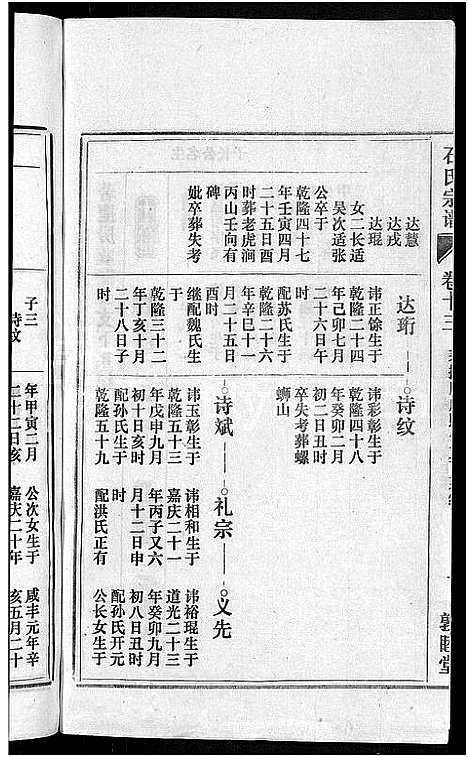 石氏宗谱
卷十三
敦睦堂
达慧
达戎
达琨
女二长适
吴次适张
公卒于
乾隆四十七
年壬寅四月
二十五日酉
时葬老虎涧
丙山壬向有
碑
妣卒葬失考
达珩
讳正馀生于
乾隆二十四
年己卯七月
二十六日午
时
配苏氏生于
乾隆二十六
年辛巳十一
月二十五日
酉时
继配魏氏生
于
乾隆三十二
年丁亥十月
二十八日子
时
诗纹
讳彩彰生于
乾隆四十八
年癸卯二月
初二日丑时
卒失考葬螺
蛳山
诗斌
讳玉彰生于
乾隆五十三
年戊申九月
初十日亥时
配孙氏生于
乾隆五十九
礼宗
讳相和生于
嘉庆二十一
年丙子又六
月十二日申
时
配洪氏正有
义先
讳裕琨生于
道光二十三
年癸卯九月
初八日丑时
配孙氏开元
公长女生于
子三
诗纹
年甲寅二月
二十二日亥
公次女生于
嘉庆二十年
咸丰元年辛
亥五月二十